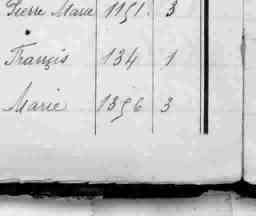 Pierre Marie 1151. 3
François 134 1
Marie 1356 3